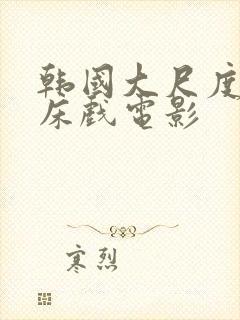 韩国大尺度
床戏电影
寒烈